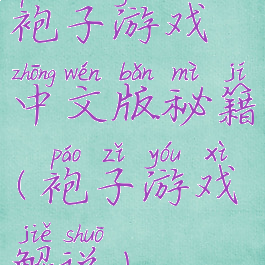 袍子游戏
zhōng wén bǎn mì jí
中文版秘籍
páo zǐ yóu xì
(袍子游戏
jiě shuō
解说)